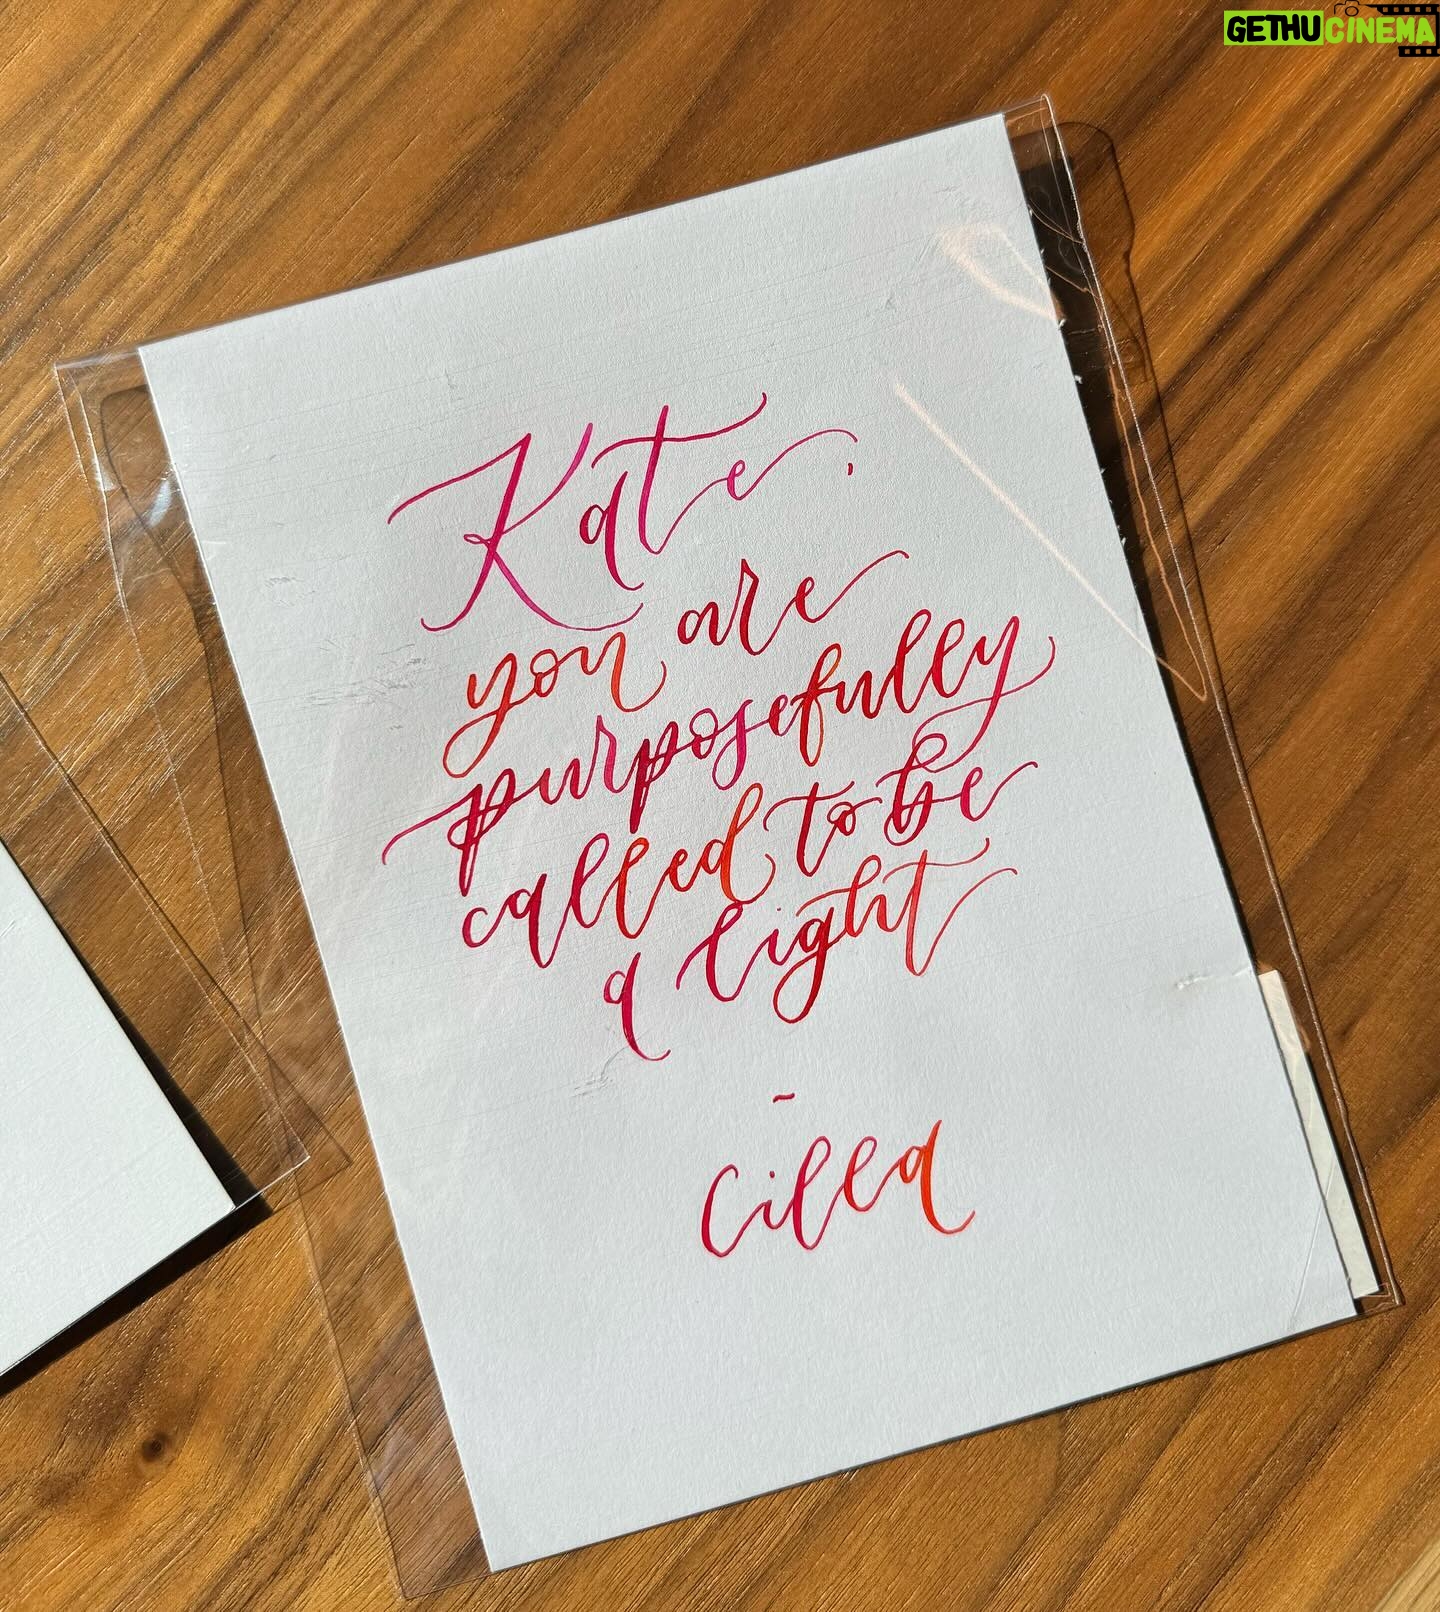 GETHUCINEMA
Kate,
you are
purposefully
called to be
a light
~
Cilla